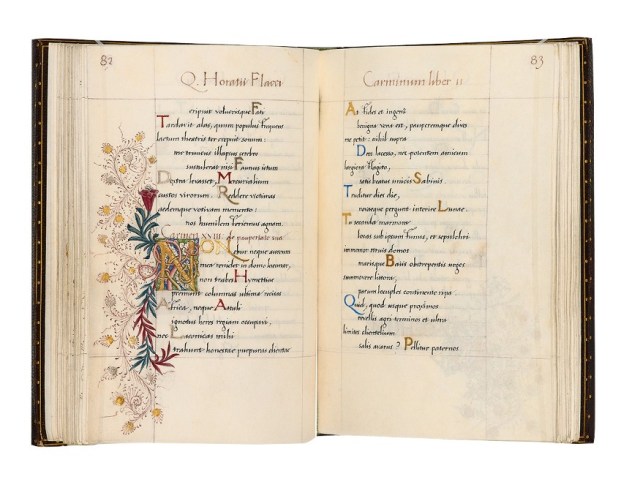 82
Q. Horatii Flacci
eripuit volucrisque Fati
Tardavit alas, quum populus frequens
laetum theatris ter crepuit sonum:
me truncus illapsus cerebro
sustulerat nisi Faunus ictum
Dextra levasset, Mercurialium
custos virorum. Reddere victimas
aedemque votivam memento:
nos humilem feriemus agnam.
Carmen XXIII. de paupertate sua
NON ebur neque aureum
mea renidet in domo lacunar,
non trabes Hymettiae
premunt columnas ultima recisas
Africa, neque Attali
ignotus heres regiam occupavi,
nec Laconicas mihi
trahunt honestae purpuras clientae
83
Carminum liber ii
At fides et ingeni
benigna vena est, pauperemque dives
me petit: nihil supra
Deos lacesso, nec potentem amicum
largiora flagito,
satis beatus unicis Sabinis.
Truditur dies die,
novaeque pergunt interire Lunae.
Tu secanda marmora
locas sub ipsum funus, et sepulchri
immemor struis domos
marisque Baiis obstrepentis urges
summovere litora,
parum locuples continente ripa.
Quid, quod usque proximos
revellis agri terminos et ultra
limites clientium
salis avarus? Pellitur paternos